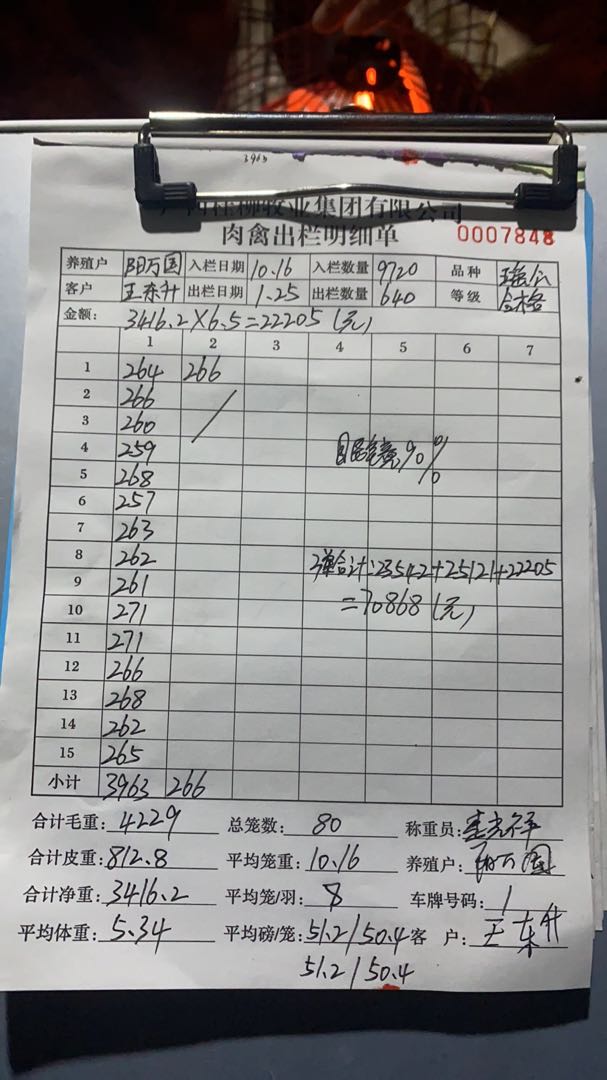 3963
桂柳牧业集团有限公司
肉禽出栏明细单 0007848
养殖户 阳万国 入栏日期 10.16 入栏数量 9720 品种 瑶公
客户 王东升 出栏日期 1.25 出栏数量 640 等级 合格
金额: 3416.2×6.5=22205(元)
1 2 3 4 5 6 7
1 264 266
2 266
3 260
4 259
5 268
6 257
7 263
8 262 3弹合计:23542+25121+22205
9 261
10 271 =70868(元)
11 271
12 266
13 268
14 262
15 265
小计 3963 266
合计毛重: 4229 总笼数: 80 称重员:
合计皮重: 812.8 平均笼重: 10.16 养殖户: 阳万国
合计净重: 3416.2 平均笼/羽: 8 车牌号码: 1
平均体重: 5.34 平均磅/笼: 51.2/50.4 客 户: 王东升
51.2/50.4